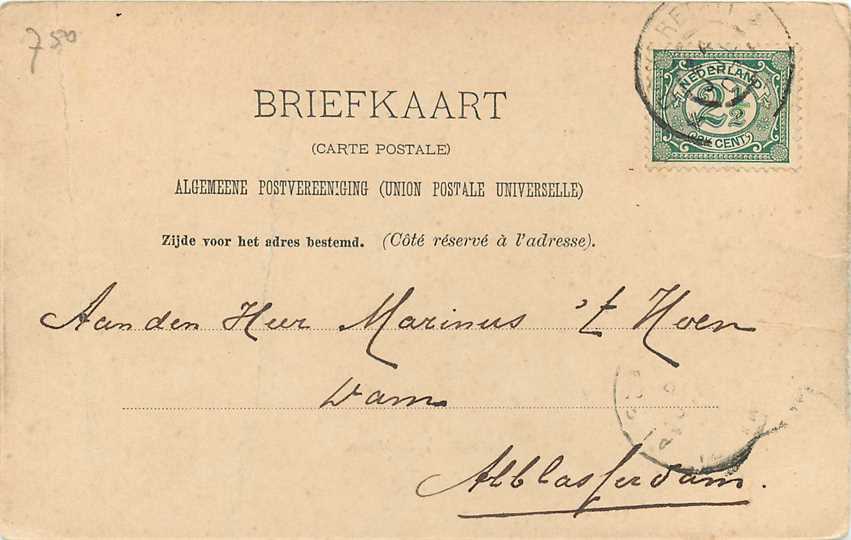 750
BRIEFKAART
(CARTE POSTALE)
ALGEMEENE POSTVEREENIGING (UNION POSTALE UNIVERSELLE)
Zijde voor het adres bestemd. (Côté réservé à l'adresse).
NEDERLAND
2½
CENT
Aan den Heer Marinus 't Hoen
Dam
Alblasserdam.